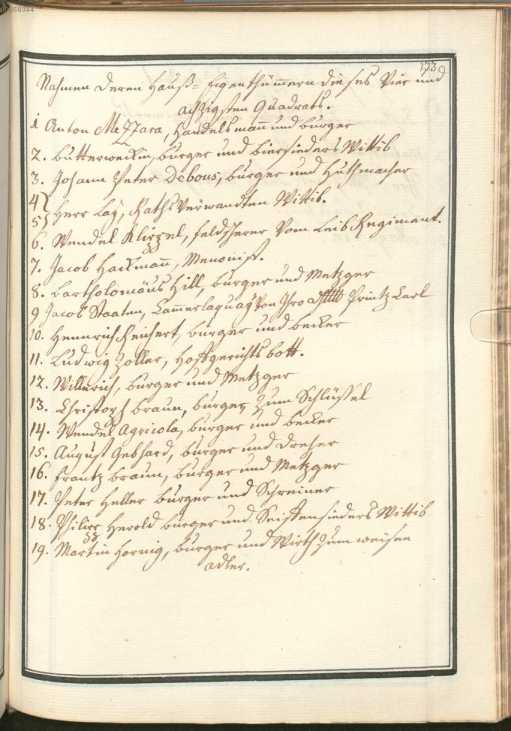 193
Nahmen deren Hauß-Eigenthümmern dieses Vier und
achzigsten Quadrats.
1 Anton Mezzara, Handelsmañ und burger
2. butterweckin, burger und biersieders Wittib
3. Johann Peter Debous, burger und Huthmacher
4
5 Herr Laÿ, Rathsverwandten Wittib.
6. Wendel Klippel, feldscherer vom Leib Regiment.
7. Jacob Hackmañ, Menonist.
8. Bartholomäus Hill, burger und Metzger
9 Jacob Staaten, Cammerlaquaÿ von Printz Carl
10. Hennrich Reichert, burger und becker
11. Ludwig Zoller, Hoffgerichts bott.
12. Willerich, burger und Metzger
13. Christoph braun, burger, Zum Schlüssel
14. Wendel Agricola, burger und becker
15. August Gebhard, burger und dreher
16. frantz braun, burger und Metzger
17. Peter Heller burger und Schreiner
18. Philipp Herold burger und Seiffensieders Wittib
19. Martin Hornig, burger und Wirth zum weisen
adler.